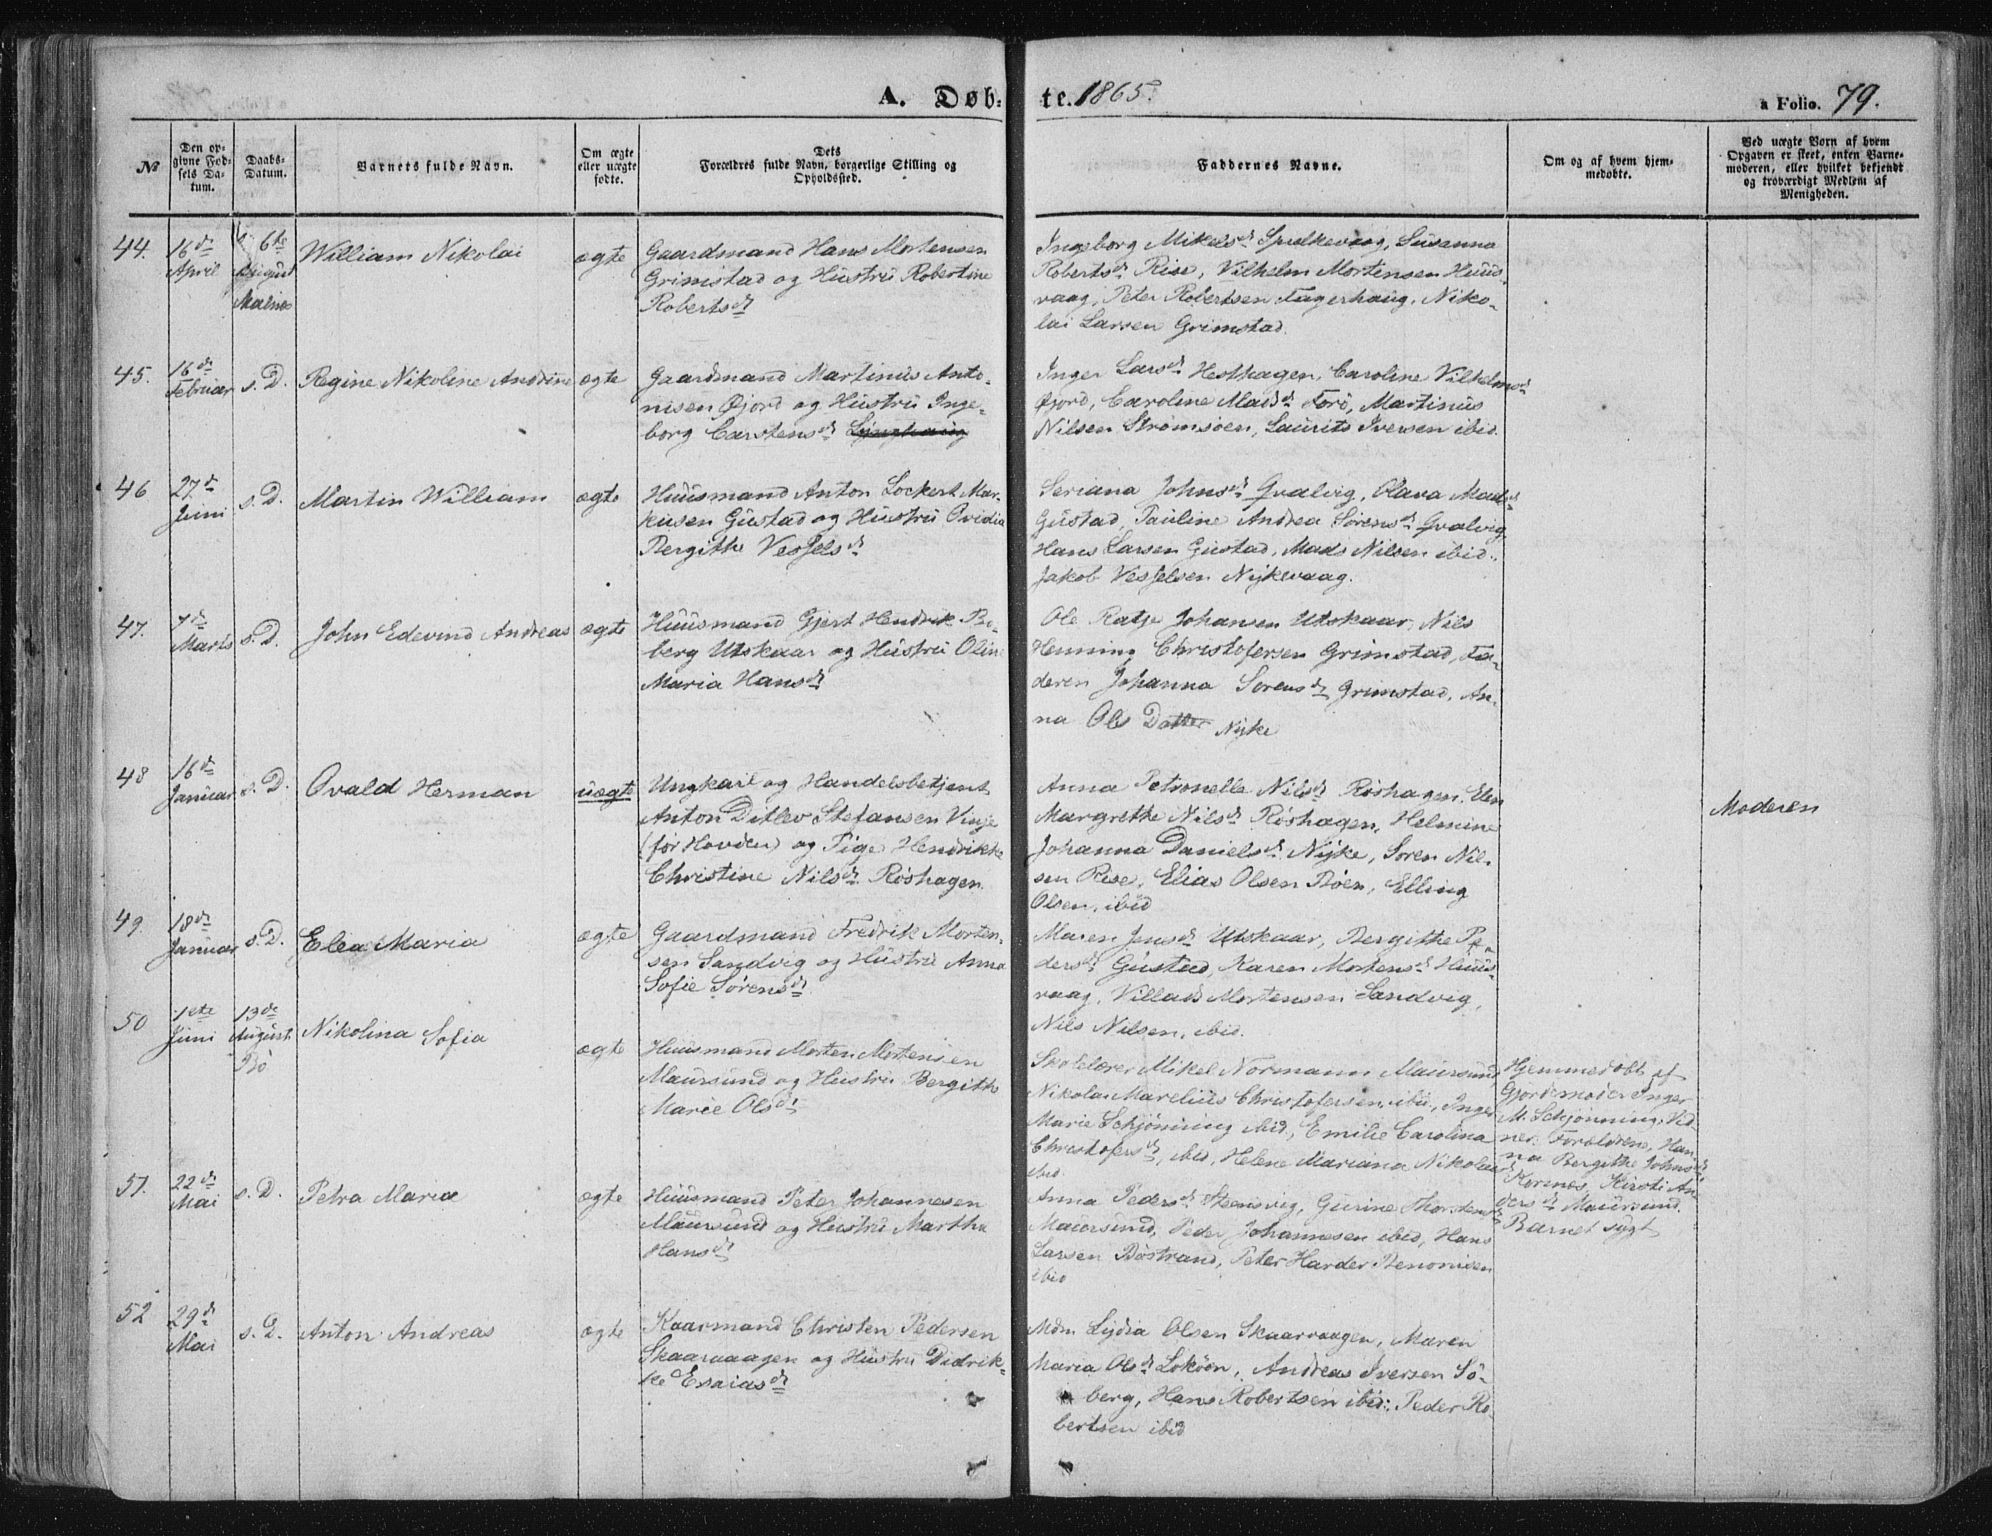 A. Døb-
te. 1865.
a Folio. 79.
№
Den op-
givne Fød-
sels Da-
tum.
Daabs-
Datum.
Barnets fulde Navn.
Om ægte
eller uægte
fødte.
Dets
Forældres fulde Navn, borgerlige Stilling og
Opholdssted.
Faddernes Navne.
Om og af hvem hjem-
medøbte.
Ved uægte Børn af hvem
Opgaven er skeet, enken Barne-
moderen, eller hvilket bekjendt
og troværdigt Medlem af
Menigheden.
44.
16de
April
6te
August
Malnes
William Nikolai
ægte
Gaardmand Hans Mortensen
Grimstad og Hustru Robertine
Robertsdr
Ingeborg Mikelsdr Spælkevaag, Susanna
Robertsdr Rise, Vilhelm Mortensen Huus-
vaag, Peter Robertsen Fagerhaug, Niko-
lai Larsen Grimstad.
45.
16de
Februar
s. D.
Regine Nikoline Andrine
ægte
Gaardmand Martinus Anto-
nisen Øjord og Hustru Inge-
borg Carstensdr
Inger Larsdr Hesthagen, Caroline Vilhelmsdr
Øjord, Caroline Madsdr Forø, Martinus
Nilsen Strømsøen, Laurits Iversen ibid.
46
27de
Juni
s. D.
Martin William
ægte
Huusmand Anton Lockert Mar-
kusen Gustad og Hustru Ovidia
Bergithe Vesselsdr
Seriana Johnsdr Qvalvig, Olava Madsdr
Gustad, Pauline Andrea Sørensdr Qvalvig
Hans Larsen Gustad, Mads Nilsen ibid.
Jakob Vesselsen Nykevaag.
47.
7de
Marts
s. D.
John Edevind Andreas
ægte
Huusmand Gjert Hendrik Bo-
berg Utskaar og Hustru Oline
Maria Hansdr
Ole Ratje Johansen Utskaar, Nils
Henning Christofersen Grimstad, Fa-
deren Johanna Sørensdr Grimstad, An-
na Ols Datter Nyke
48
16de
Januar
s. D.
Ovald Herman
uægte
Ungkarl og Handelsbetjent
Anton Ditlev Stefansen Vinje
(før Hovden) og Pige Hendrikke
Christine Nilsdr Røshagen
Anna Petronelle Nilsdr Røshagen, Elen
Margrethe Nilsdr Røshagen, Helmine
Johanna Danielsdr Nyke, Søren Nil-
sen Rise, Elias Olsen Bøen, Elling
Olsen, ibid
Moderen
49.
18de
Januar
s. D.
Elea Maria
ægte
Gaardmand Fredrik Morten-
sen Sandvig og Hustru Anna
Sofie Sørensdr
Maren Jensdr Utskaar, Bergithe Pe-
dersdr Gustad, Karen Mortensdr Huus-
vaag, Villads Mortensen Sandvig,
Nils Nilsen, ibid.
50
1ste
Juni
13de
August
Bø
Nikolina Sofia
ægte
Huusmand Morten Mortensen
Maursund og Hustru Bergithe
Marie Olsdr
Skolelærer Mikel Normann Maursund
Nikolai Marelius Christofersen, ibid, Inger
Marie Schjønning ibid, Emilie Carolina
Christofersdr, ibid, Helene Mariana Nikolai
ibid
Hjemmedøbt af
Gjordemoder Inger
M. Schjønning, Vid-
ner: Forældrene, Han-
na Bergithe Johnsdr
Korsnes, Kirsti An-
dersdr Maursund.
Barnet sygt
51.
22de
Mai
s. D.
Petra Maria
ægte
Huusmand Peter Johannesen
Maursund og Hustru Martha
Hansdr
Anna Pedersdr Steensvig, Gurine Thorstensdr
Maursund, Peder Johannesen ibid, Hans
Larsen Bøstrand, Peter Harder Benonisen
ibid
52
29de
Mai
s. D.
Anton Andreas
ægte
Kaarmand Christen Pedersen
Skaarvaagen og Hustru Didrik-
ke Esaiasdr
Mdm. Lydia Olsen Skaarvaagen, Maren
Maria Olsdr Lokøen, Andreas Iversen Sø-
berg, Hans Robertsen ibid, Peder Ro-
bertsen ibid